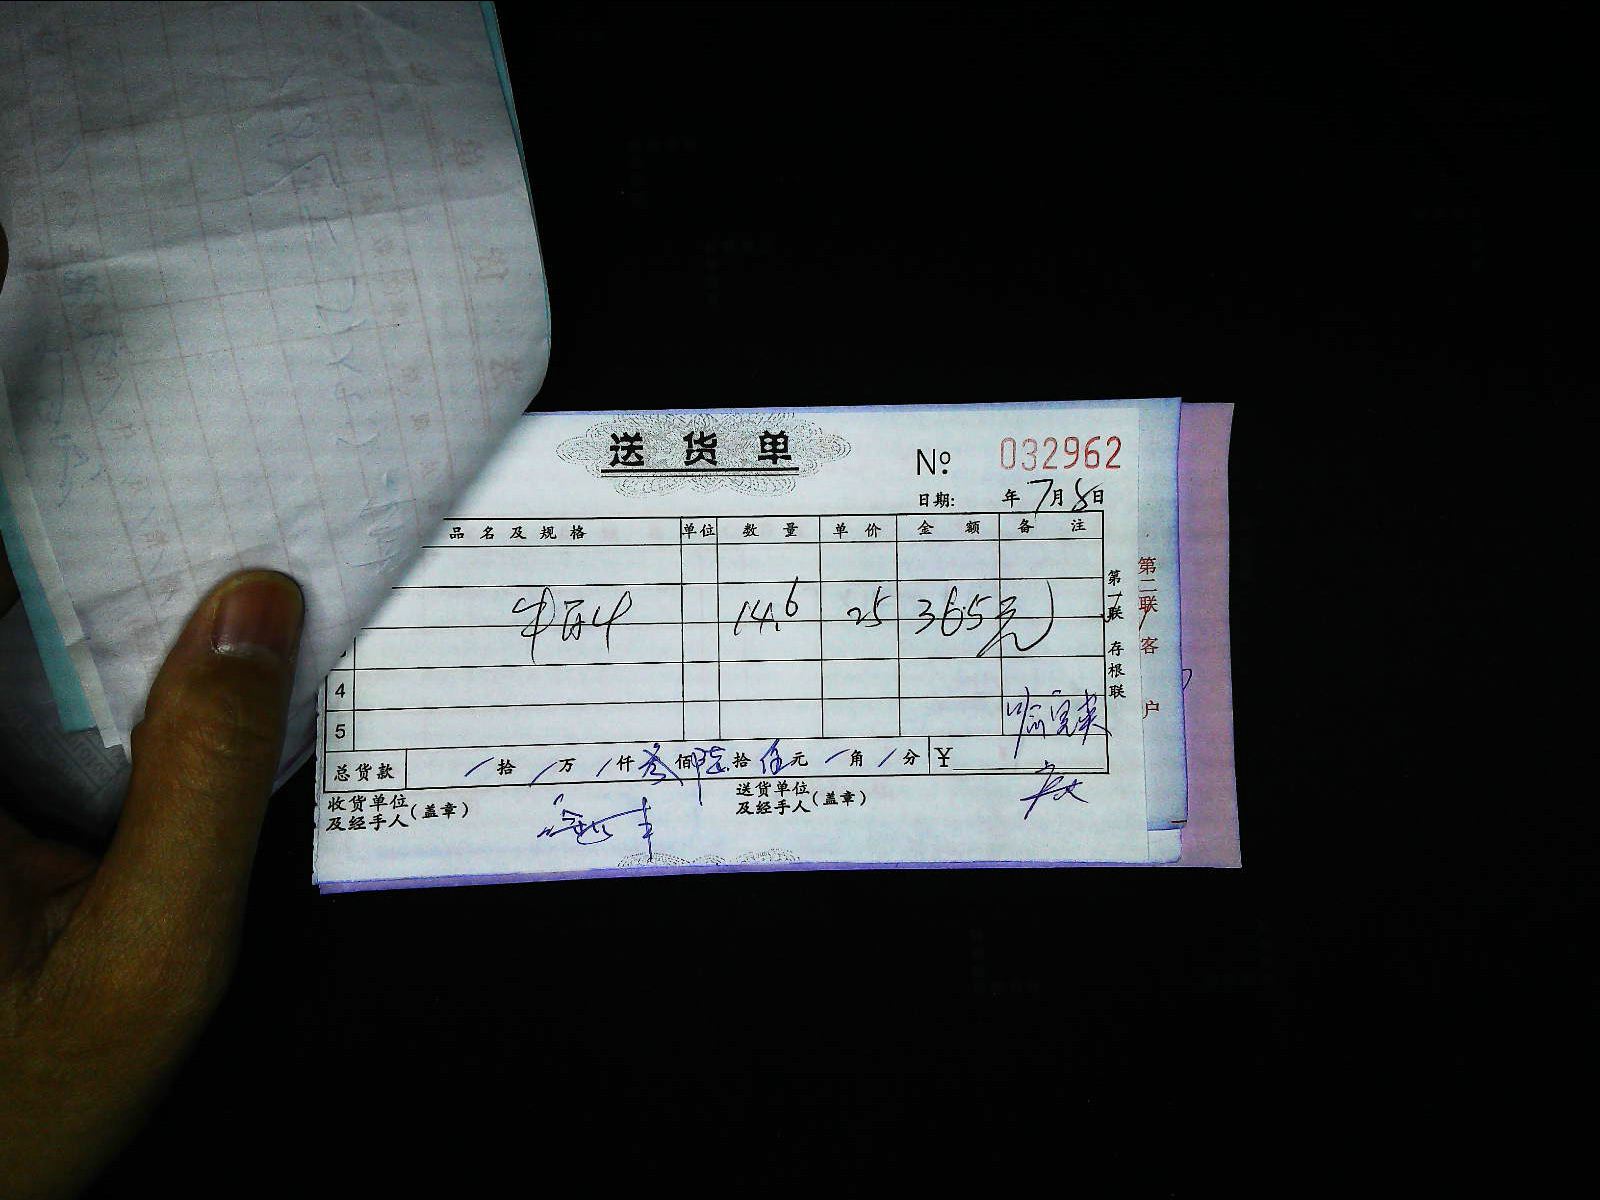 送货单
№ 032962
日期: 年7月8日
品名及规格 单位 数量 单价 金额 备注
14.6 25 365元
4
5
总货款 /拾/万/仟叁佰陆拾伍元/角/分 ¥
收货单位及经手人(盖章) 送货单位及经手人(盖章)
第一联 存根联
第二联 客户